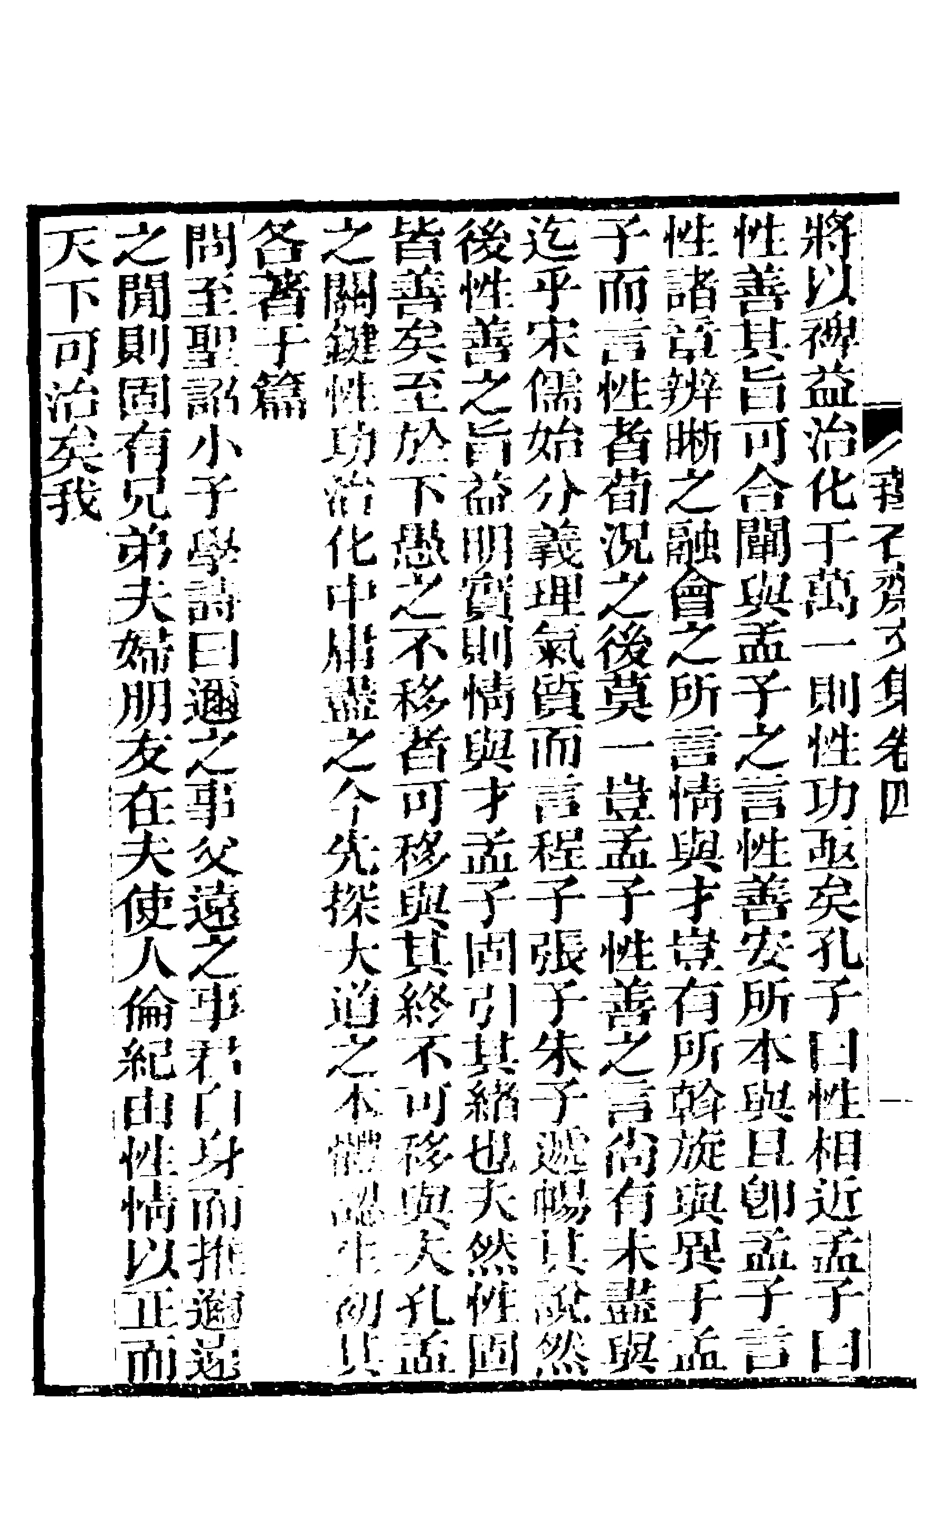 石齋文集卷四
將以裨益治化于萬一則性功亟矣孔子曰性相近孟子曰
性善其旨可合闡與孟子之言性善安所本與且卽孟子言
性諸章辨晰之融會之所言情與才豈有所斡旋與異于孟
子而言性者荀況之後莫一豈孟子性善之言尙有未盡與
迄乎宋儒始分義理氣質而言程子張子朱子遞暢其說然
後性善之旨益明實則情與才孟子固引其緒也夫然性固
皆善矣至於下愚之不移者可移與其終不可移與夫孔孟
之關鍵性功治化中庸盡之今先探大道之本體認生初其
各著于篇
問至聖詔小子學詩曰邇之事父遠之事君自身而推邇遠
之閒則固有兄弟夫婦朋友在夫使人倫紀由性情以正而
天下可治矣我